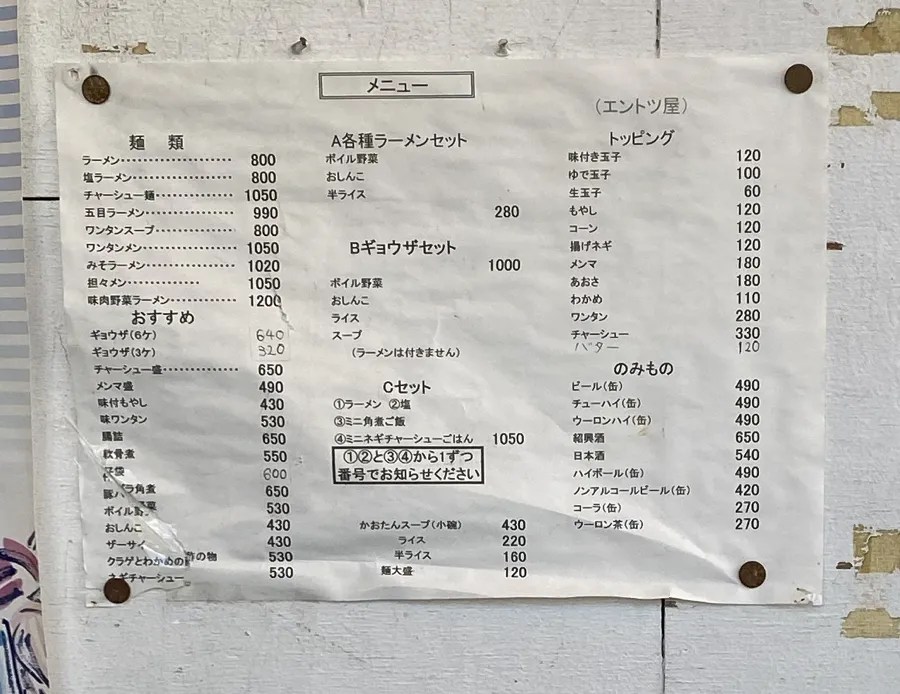 メニュー
(エントツ屋)
麺 類
ラーメン 800
塩ラーメン 800
チャーシュー麺 1050
五目ラーメン 990
ワンタンスープ 800
ワンタンメン 1050
みそラーメン 1020
担々メン 1050
味肉野菜ラーメン 1200
おすすめ
ギョウザ(6ケ) 640
ギョウザ(3ケ) 320
チャーシュー盛 650
メンマ盛 490
味付もやし 430
味ワンタン 530
腸詰 650
軟骨煮 550
袋 600
豚バラ角煮 650
ボイル野菜 530
おしんこ 430
ザーサイ 430
クラゲとわかめの酢の物 530
ネギチャーシュー 530
A各種ラーメンセット
ボイル野菜
おしんこ
半ライス
280
Bギョウザセット
1000
ボイル野菜
おしんこ
ライス
スープ
(ラーメンは付きません)
Cセット
①ラーメン ②塩
③ミニ角煮ご飯
④ミニネギチャーシューごはん 1050
①②と③④から1ずつ
番号でお知らせください
かおたんスープ(小碗) 430
ライス 220
半ライス 160
麺大盛 120
トッピング
味付き玉子 120
ゆで玉子 100
生玉子 60
もやし 120
コーン 120
揚げネギ 120
メンマ 180
あおさ 180
わかめ 110
ワンタン 280
チャーシュー 330
バター 120
のみもの
ビール(缶) 490
チューハイ(缶) 490
ウーロンハイ(缶) 490
紹興酒 650
日本酒 540
ハイボール(缶) 490
ノンアルコールビール(缶) 420
コーラ(缶) 270
ウーロン茶(缶) 270